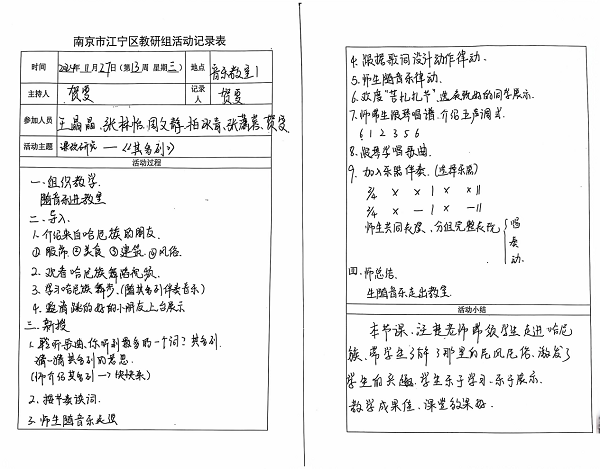 南京市江宁区教研组活动记录表
时间 2024年11月27日(第13周 星期三) 地点 音乐教室1
主持人 贺雯 记录人 贺雯
参加人员 王晶晶、张林怡、周文静、柏冰音、张潇、贺雯
活动主题 课堂研究 —《其多列》
活动过程
一.组织教学.
随音乐进教室
二.导入.
1.介绍来自哈尼族的朋友.
①服饰 ②美食 ③建筑 ④风俗
2.欢看哈尼族舞蹈视频.
3.学习哈尼族舞步.(随其多列伴奏音乐)
4.邀请跳的好的小朋友上台展示
三.新授
1.聆听歌曲,你听到最多的一个词?其多列.
猜一猜其多列的意思.
(师介绍其多列→快快来)
2.按节奏读词.
3.师生随音乐表现
4.跟据歌词设计动作律动.
5.师生随音乐律动.
6.欢度"苦扎扎节".选表现好的同学展示.
7.师带生跟琴唱谱.介绍五声调式.
6 1 2 3 5 6
8.跟琴学唱歌曲.
9.加入乐器伴奏.(选择乐器)
2/4 x x | x x ||
2/4 x — | x — ||
师生共同表演、分组完整表现 { 唱
奏
动.
四.师总结.
生随音乐走出教室.
活动小结
本节课,汪楚老师带领学生走进哈尼
族,带学生了解了那里的民风民俗,激发了
学生的兴趣.学生乐于学习.乐于展示.
教学成果佳.课堂效果好.